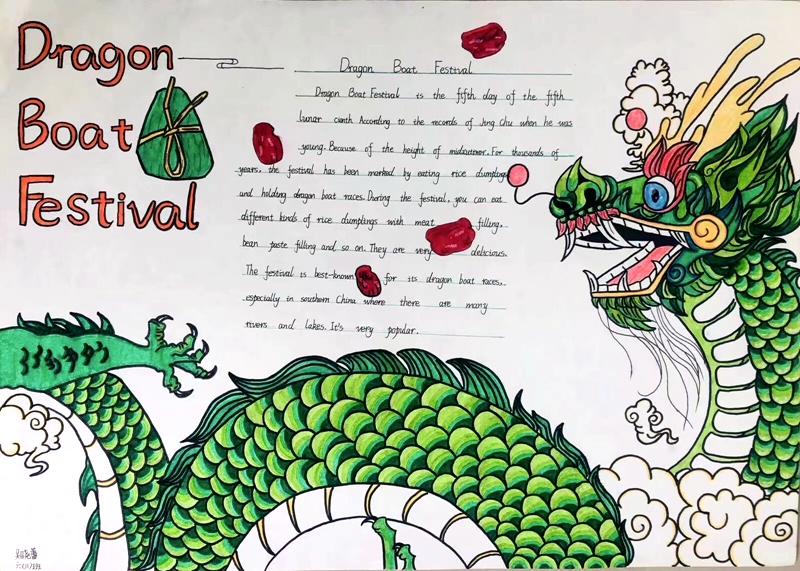 Dragon
Boat
Festival
Dragon Boat Festival
Dragon Boat Festival is the fifth day of the fifth
lunar According to the records of Jing Chu when he was
young. Because of the height of midsummer. For thousands of
years, the festival has been marked by eating rice dumplings
and holding dragon boat races. During the festival, you can eat
different kinds of rice dumplings with meat filling,
bean paste filling and so on. They are very delicious.
The festival is best-known for its dragon boat races,
especially in southern China where there are many
rivers and lakes. It's very popular.